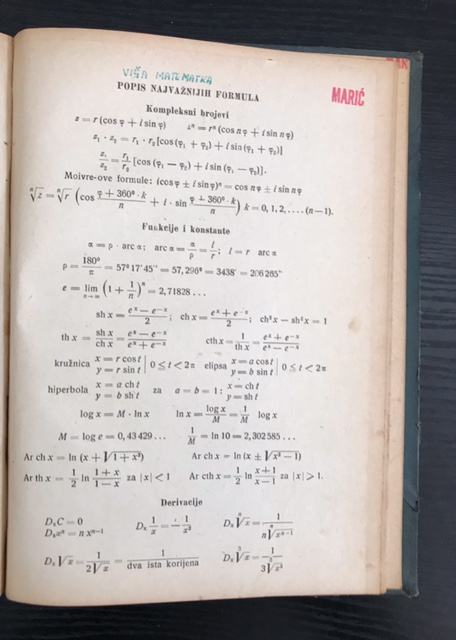 VIŠA MATEMATKA
MARIĆ
POPIS NAJVAŽNIJIH FORMULA
Kompleksni brojevi
z = r (cos φ + i sin φ) zⁿ = rⁿ (cos n φ + i sin n φ)
z₁ · z₂ = r₁ · r₂ [cos (φ₁ + φ₂) + i sin (φ₁ + φ₂)]
z₁/z₂ = r₁/r₂ [cos (φ₁ − φ₂) + i sin (φ₁ − φ₂)].
Moivre-ove formule: (cos φ ± i sin φ)ⁿ = cos n φ ± i sin n φ
ⁿ√z = ⁿ√r (cos (φ + 360° · k)/n + i · sin (φ + 360° · k)/n) k = 0, 1, 2, .... (n−1).
Funkcije i konstante
α = ρ · arc α; arc α = α/ρ = l/r; l = r arc α
ρ = 180°/π = 57° 17' 45'' = 57,296° = 3438' = 206 265''
e = lim n→∞ (1 + 1/n)ⁿ = 2,71828 ...
sh x = (eˣ − e⁻ˣ)/2; ch x = (eˣ + e⁻ˣ)/2; ch²x − sh²x = 1
th x = sh x/ch x = (eˣ − e⁻ˣ)/(eˣ + e⁻ˣ) cth x = 1/th x = (eˣ + e⁻ˣ)/(eˣ − e⁻ˣ)
kružnica x = r cos t y = r sin t | 0 ≤ t < 2π elipsa x = a cos t y = b sin t | 0 ≤ t < 2π
hiperbola x = a ch t y = b sh t za a = b = 1: x = ch t y = sh t
log x = M · ln x ln x = log x/M = 1/M log x
M = log e = 0,43 429 ... 1/M = ln 10 = 2,302 585 ...
Ar ch x = ln (x + √(1 + x²)) Ar ch x = ln (x ± √(x² − 1))
Ar th x = 1/2 ln (1 + x)/(1 − x) za |x| < 1 Ar cth x = 1/2 ln (x + 1)/(x − 1) za |x| > 1.
Derivacije
DₓC = 0 Dₓ 1/x = − 1/x² Dₓ ⁿ√x = 1/(n ⁿ√xⁿ⁻¹)
Dₓxⁿ = n xⁿ⁻¹
Dₓ √x = 1/(2√x) = 1/dva ista korijena Dₓ ³√x = 1/(3 ³√x²)